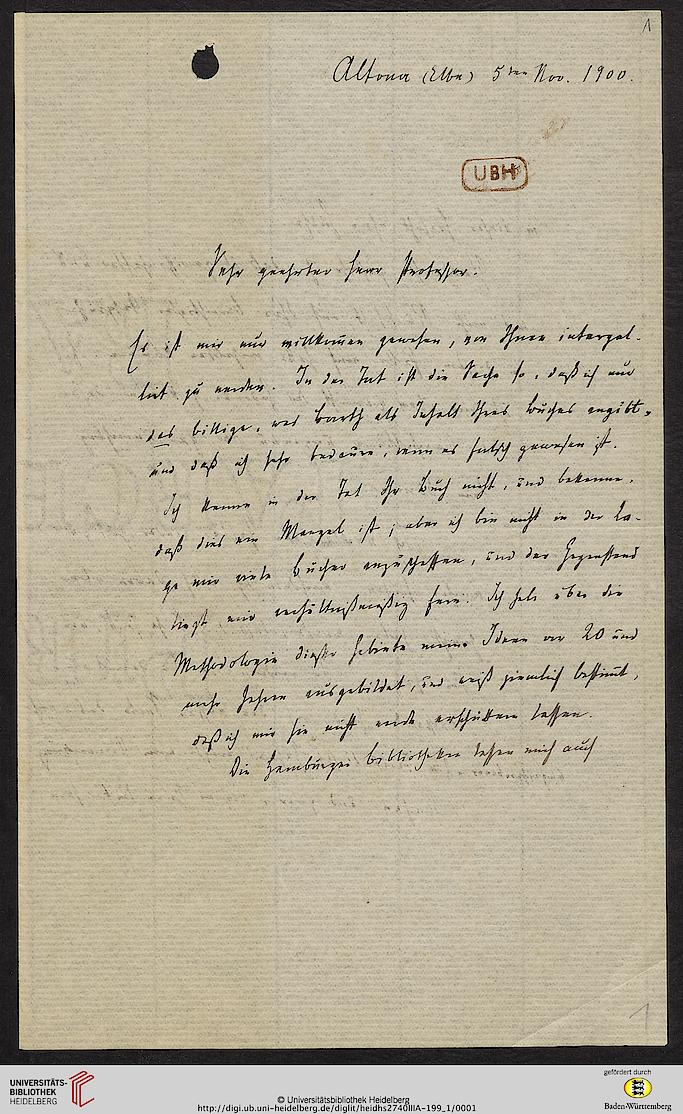 1
Altona (Elbe) 5ten Nov. 1900.
UBH
Sehr geehrter Herr Professor.
Es ist mir nur willkom̄en gewesen, von Ihnen interpel-
lirt zu werden. In der Tat ist die Sache so, daß ich nur
das billige, was Barth als Inhalt Ihres Buches angibt,
und daß ich sehr bedaure, wenn es falsch gewesen ist.
Ich kenne in der Tat Ihr Buch nicht, und bekenne,
daß dies ein Mangel ist; aber ich bin nicht in der La-
ge mir viele Bücher anzuschaffen, und der Gegenstand
liegt mir verhältnißmäßig fern. Ich habe über die
Methodologie dieser Gebiete meine Ideen vor 20 und
mehr Jahren ausgebildet, und weiß ziemlich bestim̄t,
daß ich mir sie nicht werde erschüttern lassen.
Die Hamburger Bibliotheken lassen mich auch
1
UNIVERSITÄTS-
BIBLIOTHEK
HEIDELBERG
© Universitätsbibliothek Heidelberg
http://digi.ub.uni-heidelberg.de/diglit/heidhs2740IIIA-199_1/0001
gefördert durch
Baden-Württemberg